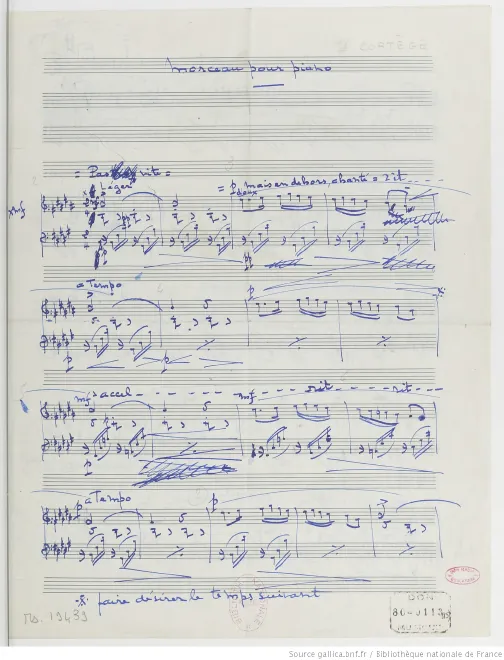 CORTÈGE
morceau pour piano
= Pas vite =
Léger
= p. mais en dehors, chanté =
mf
p
a Tempo
p
p
p
mf
accel - - - - -
mf - - - rit - - - rit - - -
p
p a Tempo
p
faire désirer le temps suivant
Ms. 19439
Source gallica.bnf.fr / Bibliothèque nationale de France